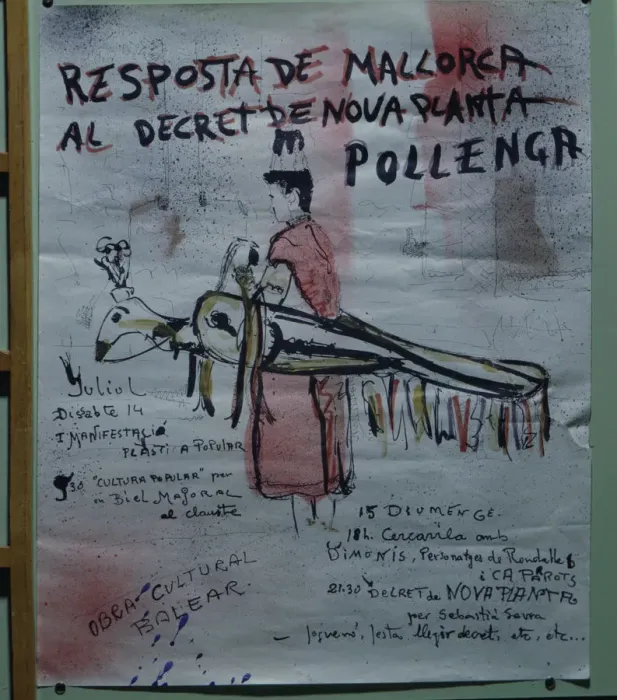 RESPOSTA DE MALLORCA
AL DECRET DE NOVA PLANTA
POLLENÇA
Juliol
Dissabte 14
I MANIFESTACIÓ
PLASTI A POPULAR
"CULTURA POPULAR" per
en Biel Majoral
al claustre
OBRA CULTURAL
BALEAR
15 DIUMENGE
18h. Cercavila amb
DIMONIS, Personatges de Rondalles
i CAPAROTS
21.30 DECRET de NOVA PLANTA
per Sebastià Serra
festa, llegir decret, etc, etc...